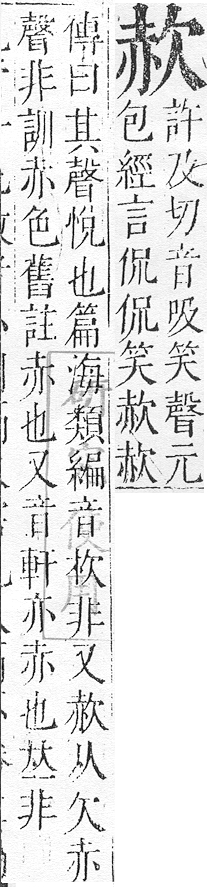 赥
許及切音吸笑聲元
包經言侃侃笑赥赥
傳曰其聲悅也篇海類編音㰦非又赥从欠赤
聲非訓赤色舊註赤也又音軒亦赤也𠀤非